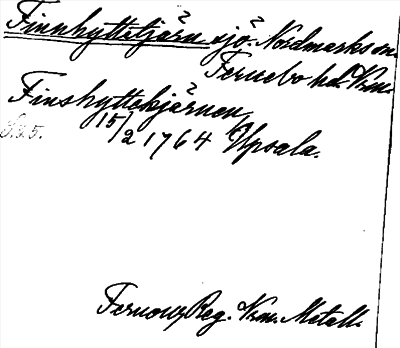 Finnhyttetjärn sjö. Nordmarks sn.
Fernebo hd Vrm.
Finshyttekjärnen,
15/2 1764 Upsala.
S. 25.
Fernow, Reg. Vrm. Metall.